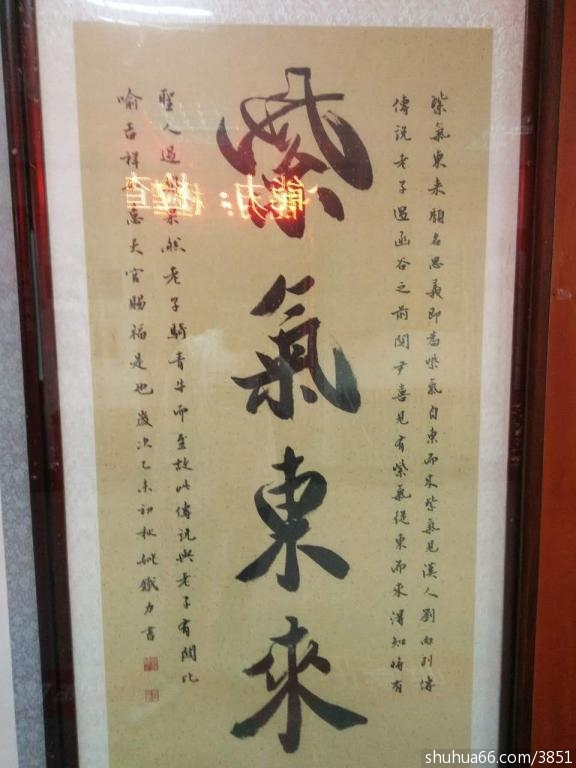 紫氣東來
紫氣東来顧名思義即為紫氣自東而来紫氣見漢人劉向列傳
傳說老子過函谷之前関尹喜見有紫氣從東而來得知時有
聖人過 果然老子騎青牛而至故此傳說與老子有関比
喻吉祥 意天官賜福是也歲次乙未初秋姚鐵力書
能力：檢查
shuhua66.com/3851